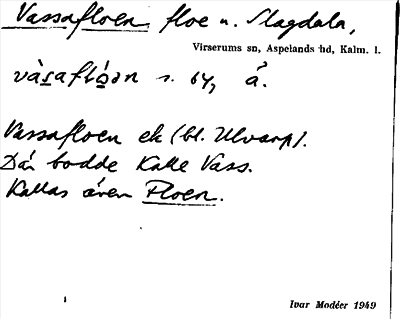 Vassafloen floe u. Slagdala,
Virserums sn, Aspelands hd, Kalm. l.
s. by, å.
Vassafloen ek (bl. Ulvarp).
Där bodde Kalle Vass.
Kallas även Floen.
Ivar Modéer 1949